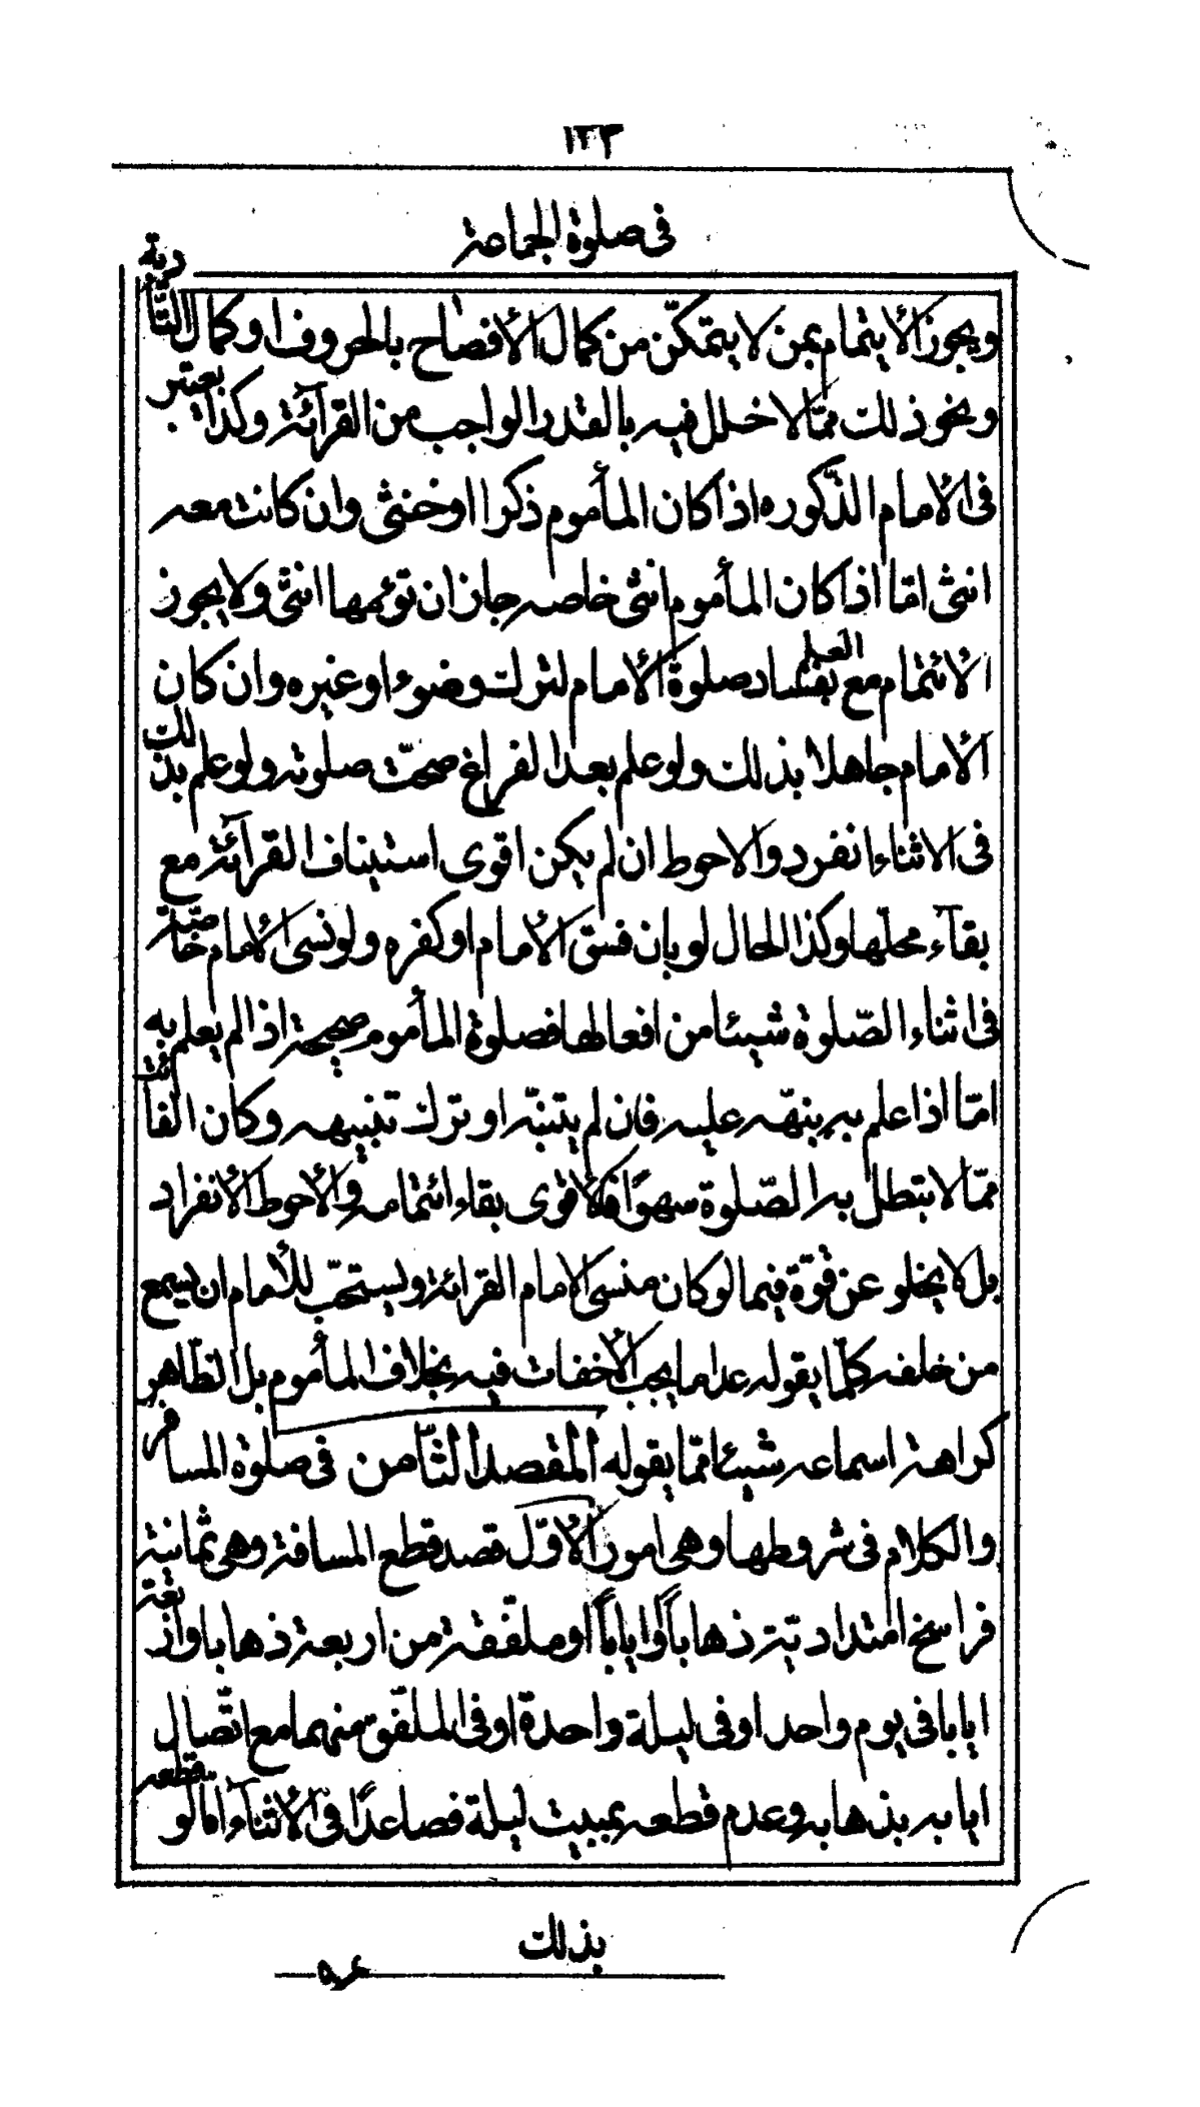 ١٣٣
فى صلوة الجماعة
ويجوز الأيتمام بمن لا يتمكّن من كمال الأفصاح بالحروف او كمال التّأدية
ونحو ذلك ممّا لا خلل فيه بالقدر الواجب من القرآئة وكذا يعتبر
فى الأمام الذّكوره اذا كان المأموم ذكرا او خنثى وان كانت معه
انثى امّا اذا كان المأموم انثى خاصه جاز ان تؤمها انثى ولا يجوز
الأئتمام مع العلم بفساد صلوة الأمام لترك وضوء او غيره وان كان
الأمام جاهلا بذلك ولو علم بعد الفراغ صحّت صلوته ولو علم بذلك
فى الاثناء انفرد والاحوط ان لم يكن اقوى استيناف القرآئة مع
بقآء محلّها وكذا الحال لو بان فسق الأمام او كفره ولو نسى الأمام خاصّة
فى اثناء الصّلوة شيئا من افعالها فصلوة المأموم صحيحة اذا لم يعلم به
امّا اذا علم به ينبّه عليه فان لم يتنبّه او ترك تنبيهه وكان الفائت
ممّا لا تبطل به الصّلوة سهوًا فالأقوى بقاء ائتمامه والأحوط الأنفراد
بل لا يخلو عن قوّة فيما لو كان منسى الامام القرائة ويستحبّ للأمام ان يسمع
من خلفه كلّما يقوله عدا ما يجب الأخفات فيه بخلاف المأموم بل الظّاهر
كراهة اسماعه شيئا ممّا يقوله المقصد الثّامن فى صلوة المسافر
والكلام فى شروطها وهى امور الأوّل قصد قطع المسافة وهى ثمانية
فراسخ امتداديّة ذهاباً او اياباً او ملفّقة من اربعة ذهابا واربعة
ايابا فى يوم واحد او فى ليلة واحدة او فى الملفّق منهما مع اتّصال
ايابه بذهابه وعدم قطعه بمبيت ليلة فصاعدًا فى الأثناء امّا لو قطعه
بذلك